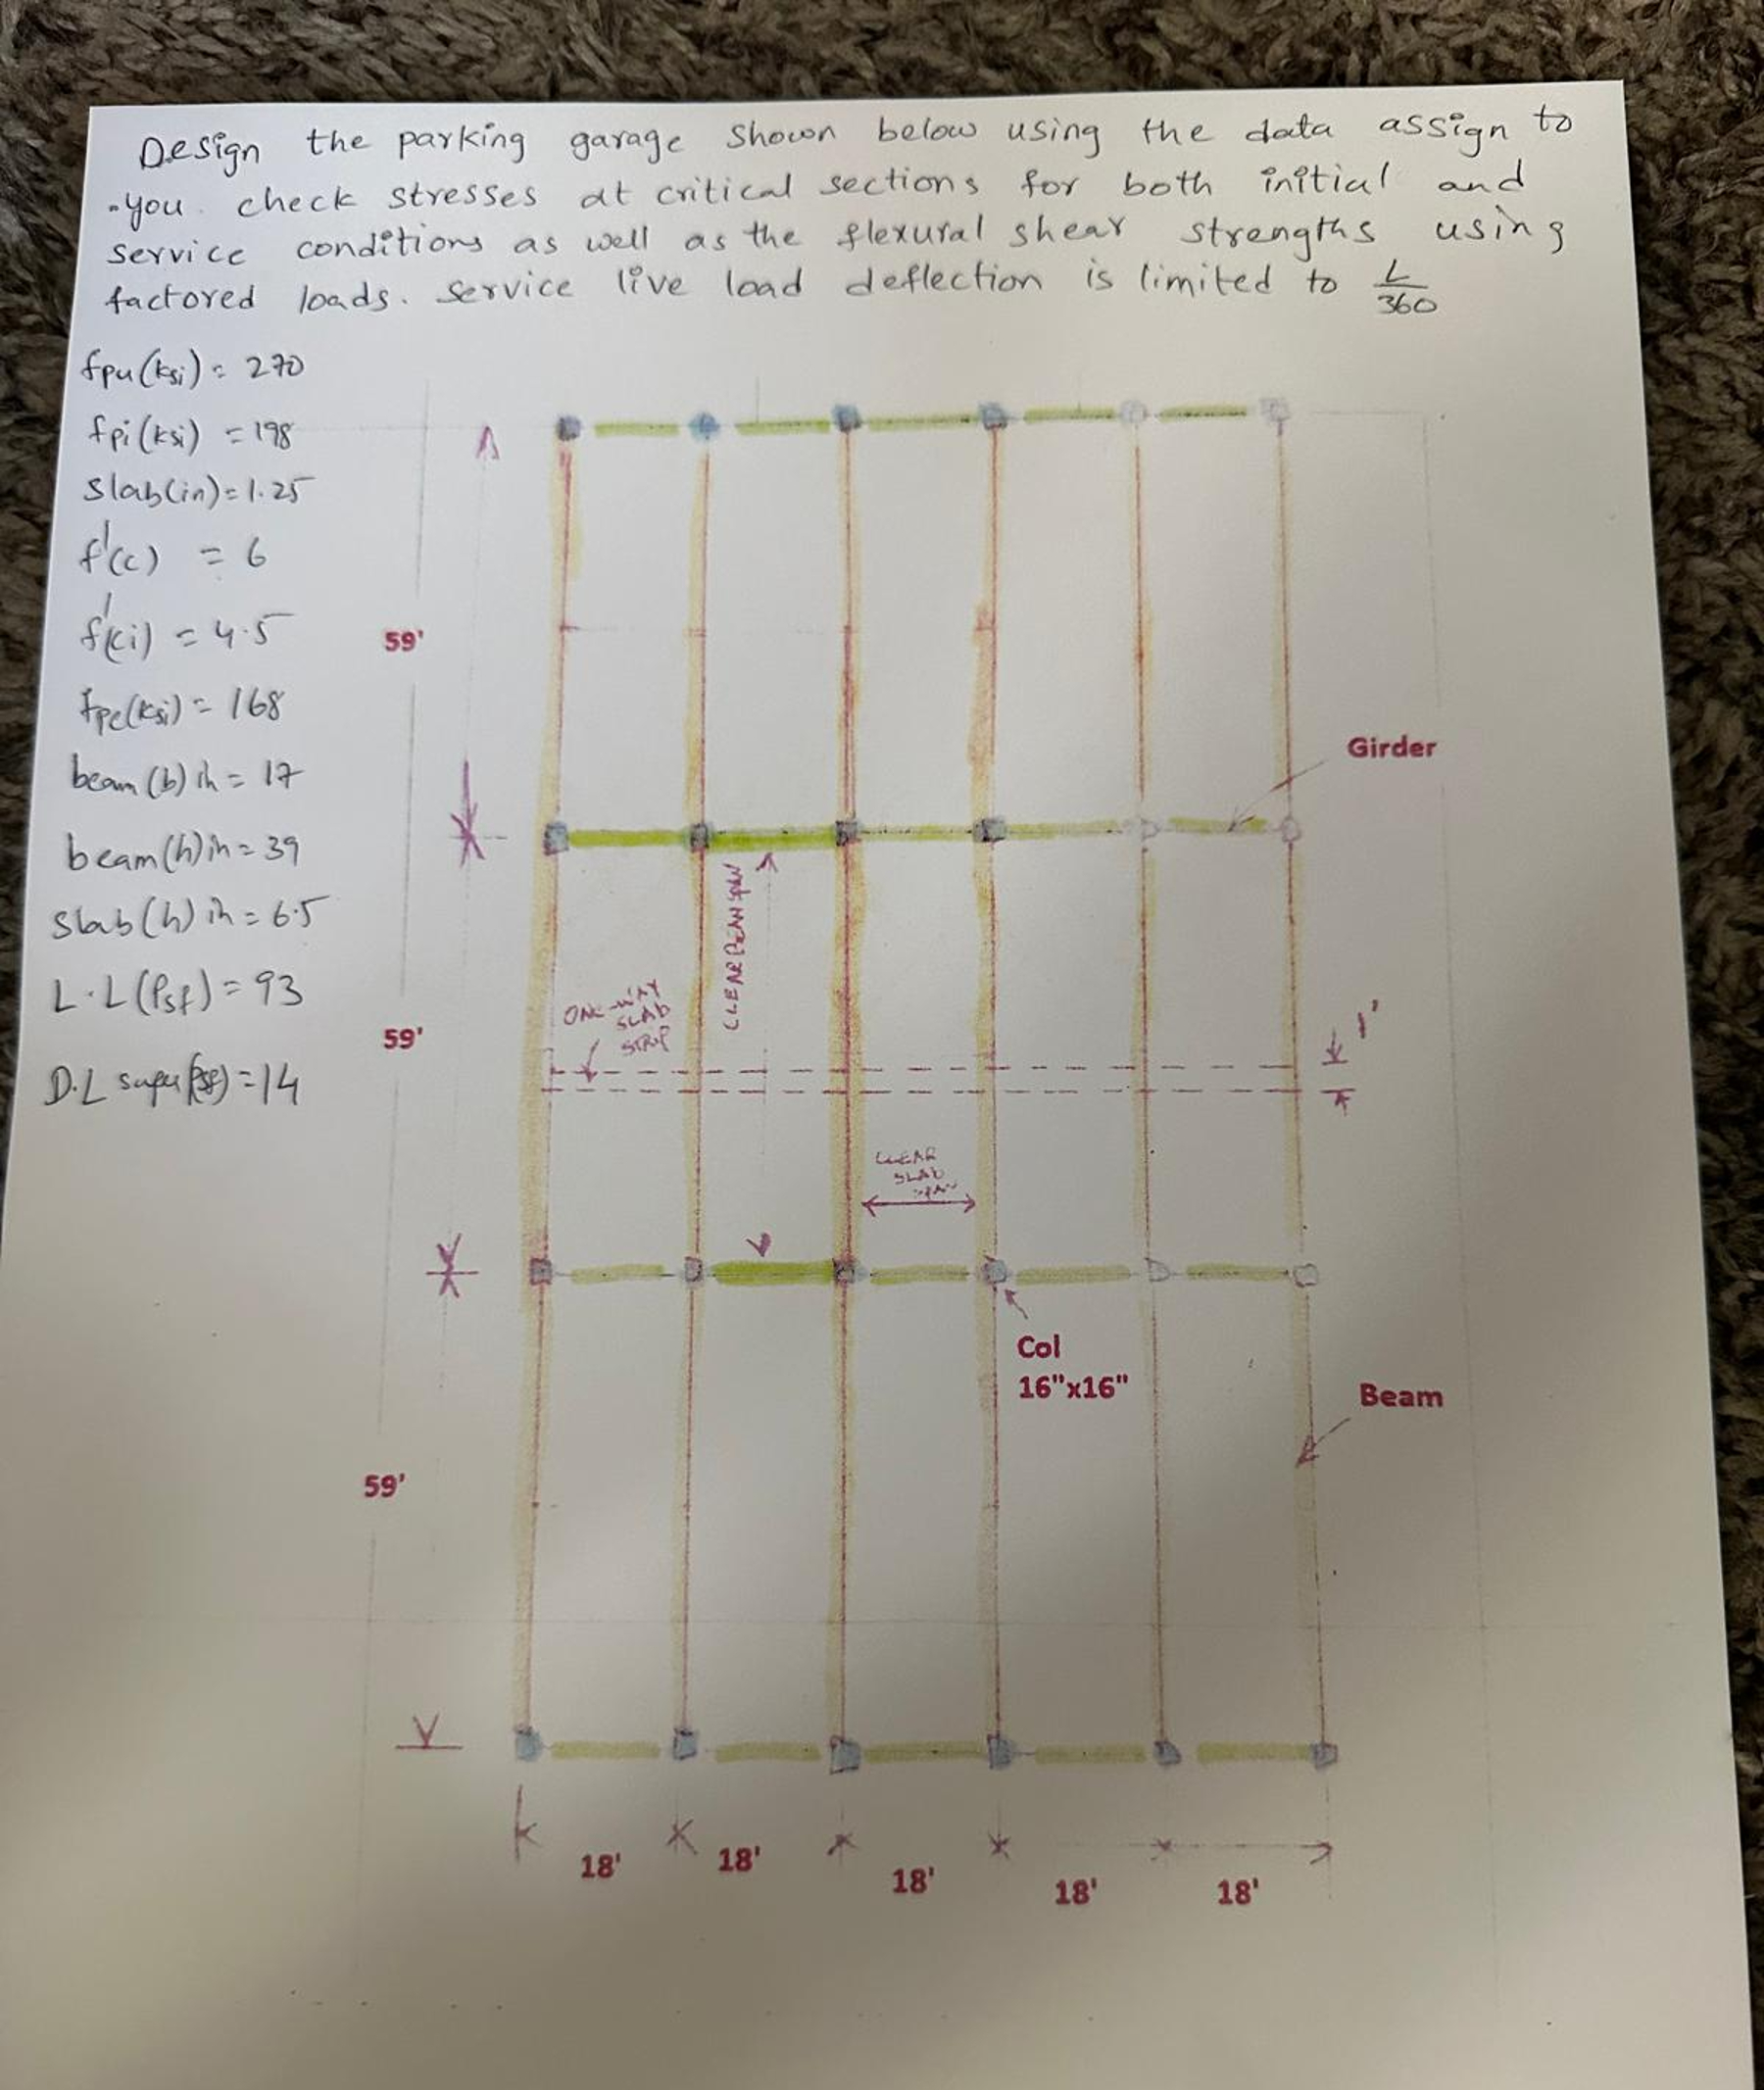 Design the parking garage shown below using the data assign to
you. check stresses at critical sections for both initial and
service conditions as well as the flexural shear strengths using
factored loads. service live load deflection is limited to L/360
fpu(ksi) = 270
fpi(ksi) = 198
slab(in) = 1.25
f'(c) = 6
f'(ci) = 4.5
fpe(ksi) = 168
beam (b) in = 17
beam(h) in = 39
slab(h) in = 6.5
L.L (Psf) = 93
D.L super(psf) = 14
59'
Girder
CLEAR BEAM SPAN
ONE-WAY
SLAB
STRIP
1'
59'
CLEAR
SLAB
SPAN
Col
16"x16"
Beam
59'
18'
18'
18'
18'
18'